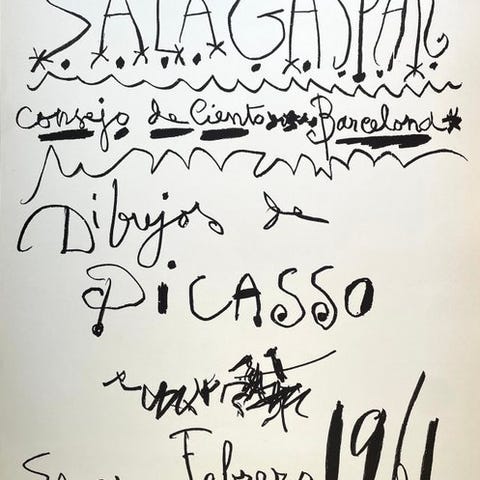 SALA GASPAR
Consejo de Ciento Barcelona
Dibujos de
PiCASSO
Febrero 1961